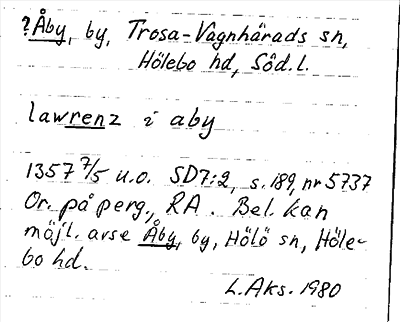 ?Åby, by, Trosa-Vagnhärads sn,
Hölebo hd, Söd.l.
lawrenz i aby
1357 7/5 u.o. SD7:2, s.189, nr 5737
Or. på perg., RA. Bel. kan
möjl. avse Åby, by, Hölö sn, Höle-
bo hd.
L.Aks. 1980